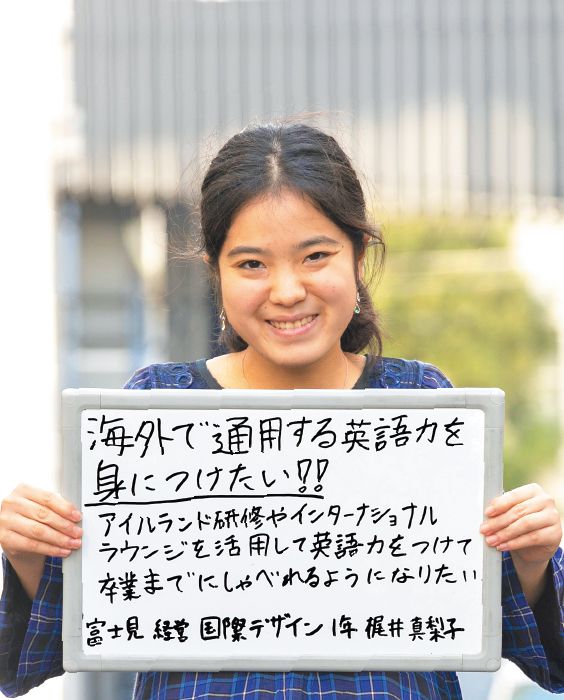 海外で通用する英語力を
身につけたい!!
アイルランド研修やインターナショナル
ラウンジを活用して英語力をつけて
卒業までにしゃべれるようになりたい
富士見 経営 国際デザイン 1年 梶井 真梨子